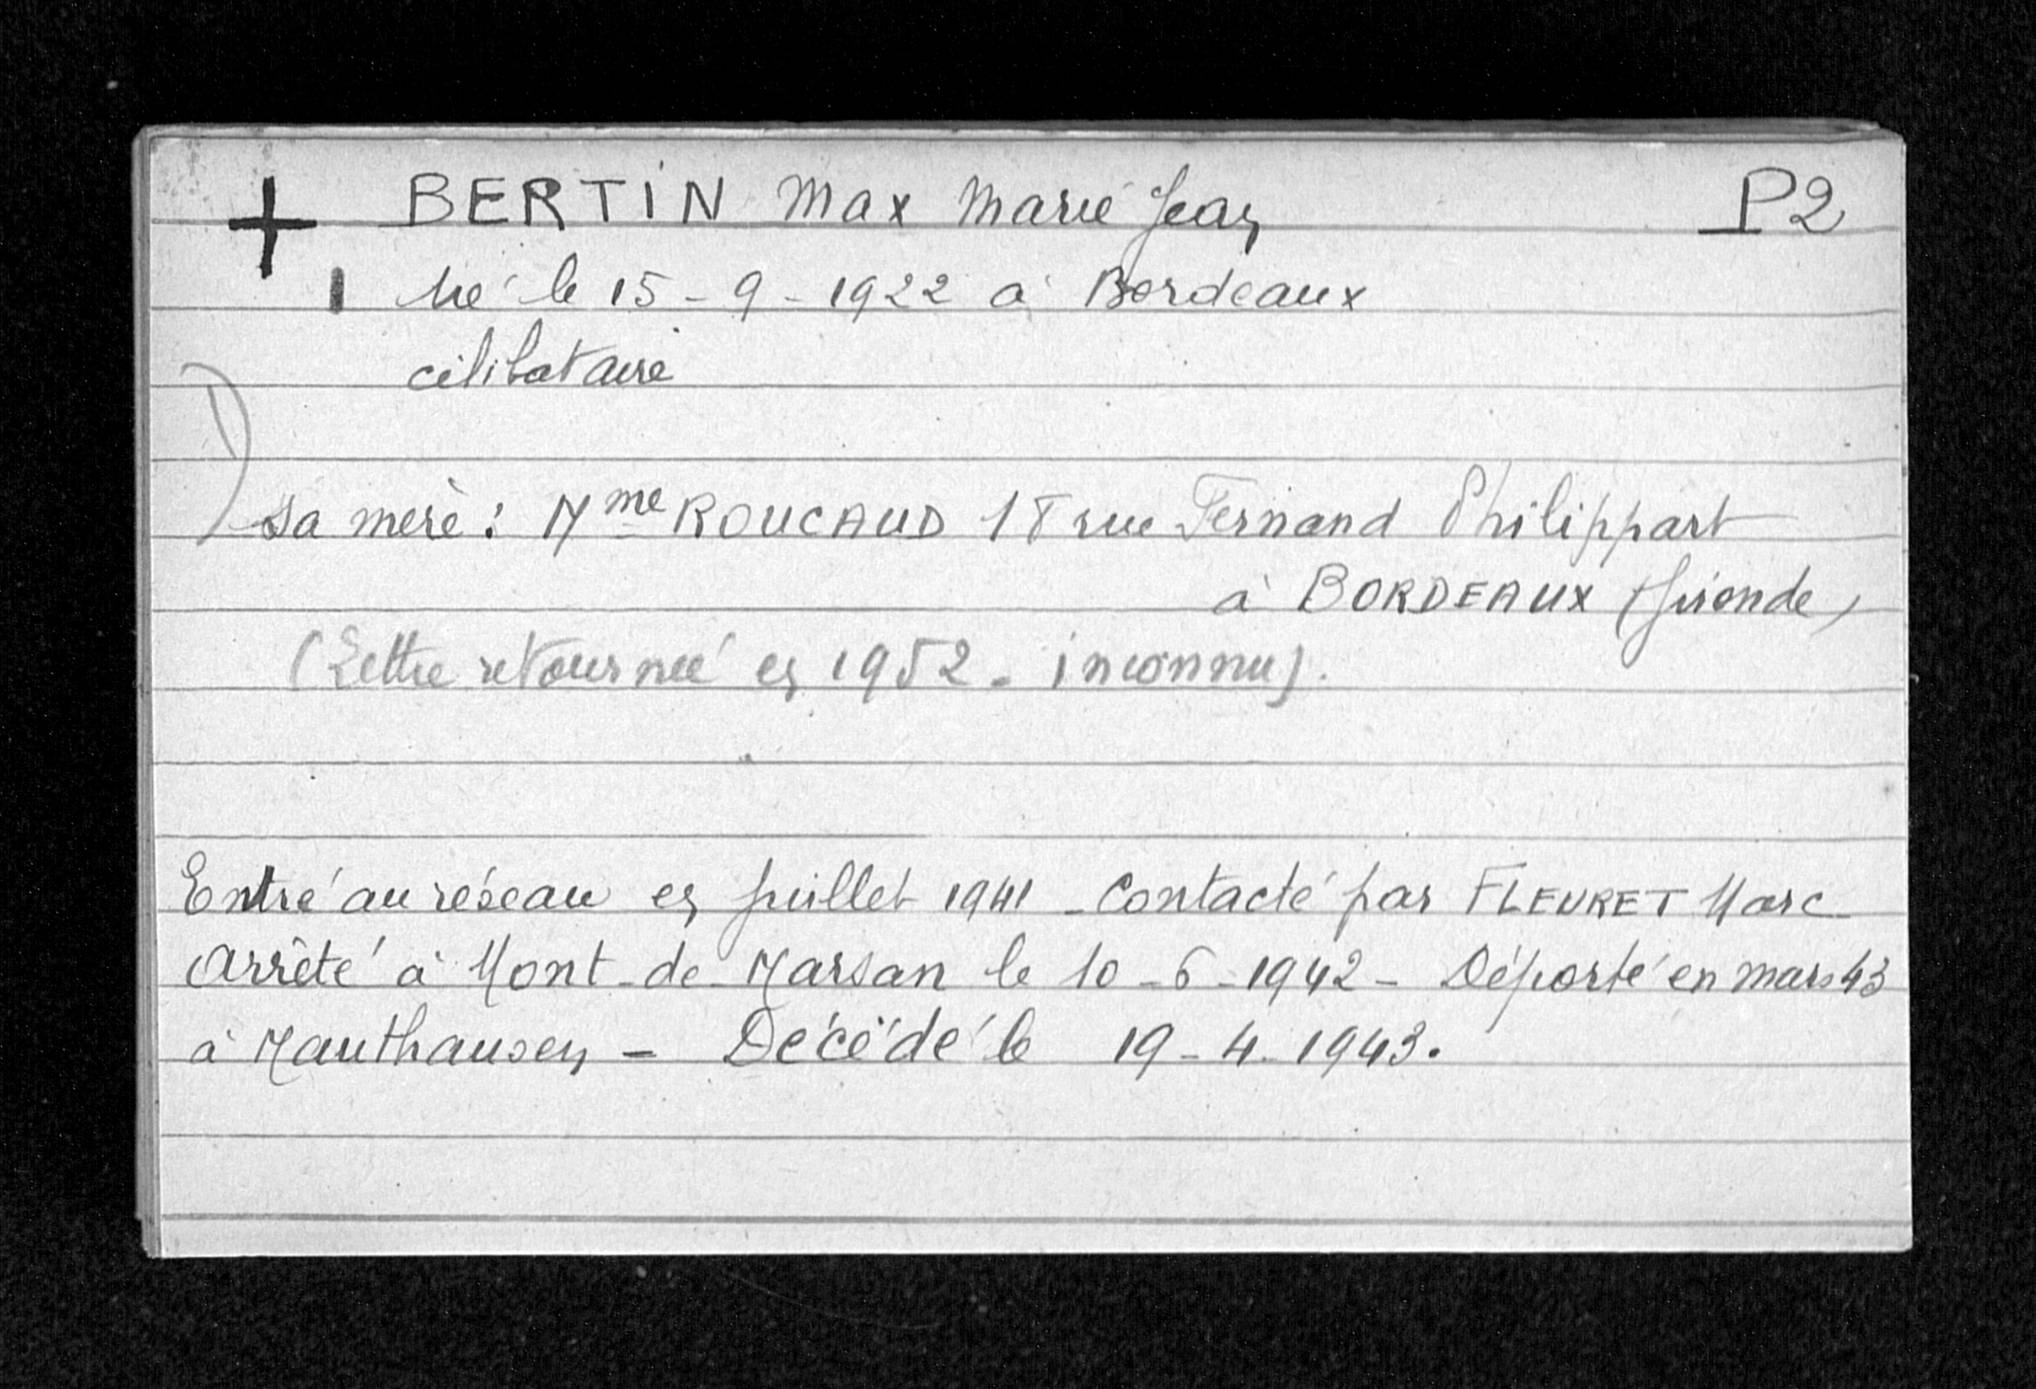 + BERTIN Max Marie Jean P2
né le 15-9-1922 à Bordeaux
célibataire
Sa mère : Mme ROUCAUD 18 rue Fernand Philippart
à BORDEAUX (Gironde)
(Lettre retournée en 1952 - inconnu).
Entré au réseau en Juillet 1941 - Contacté par FLEURET Marc
Arrêté à Mont-de-Marsan le 10-6-1942 - Déporté en mars 43
à Mauthausen - Décédé le 19-4-1943.